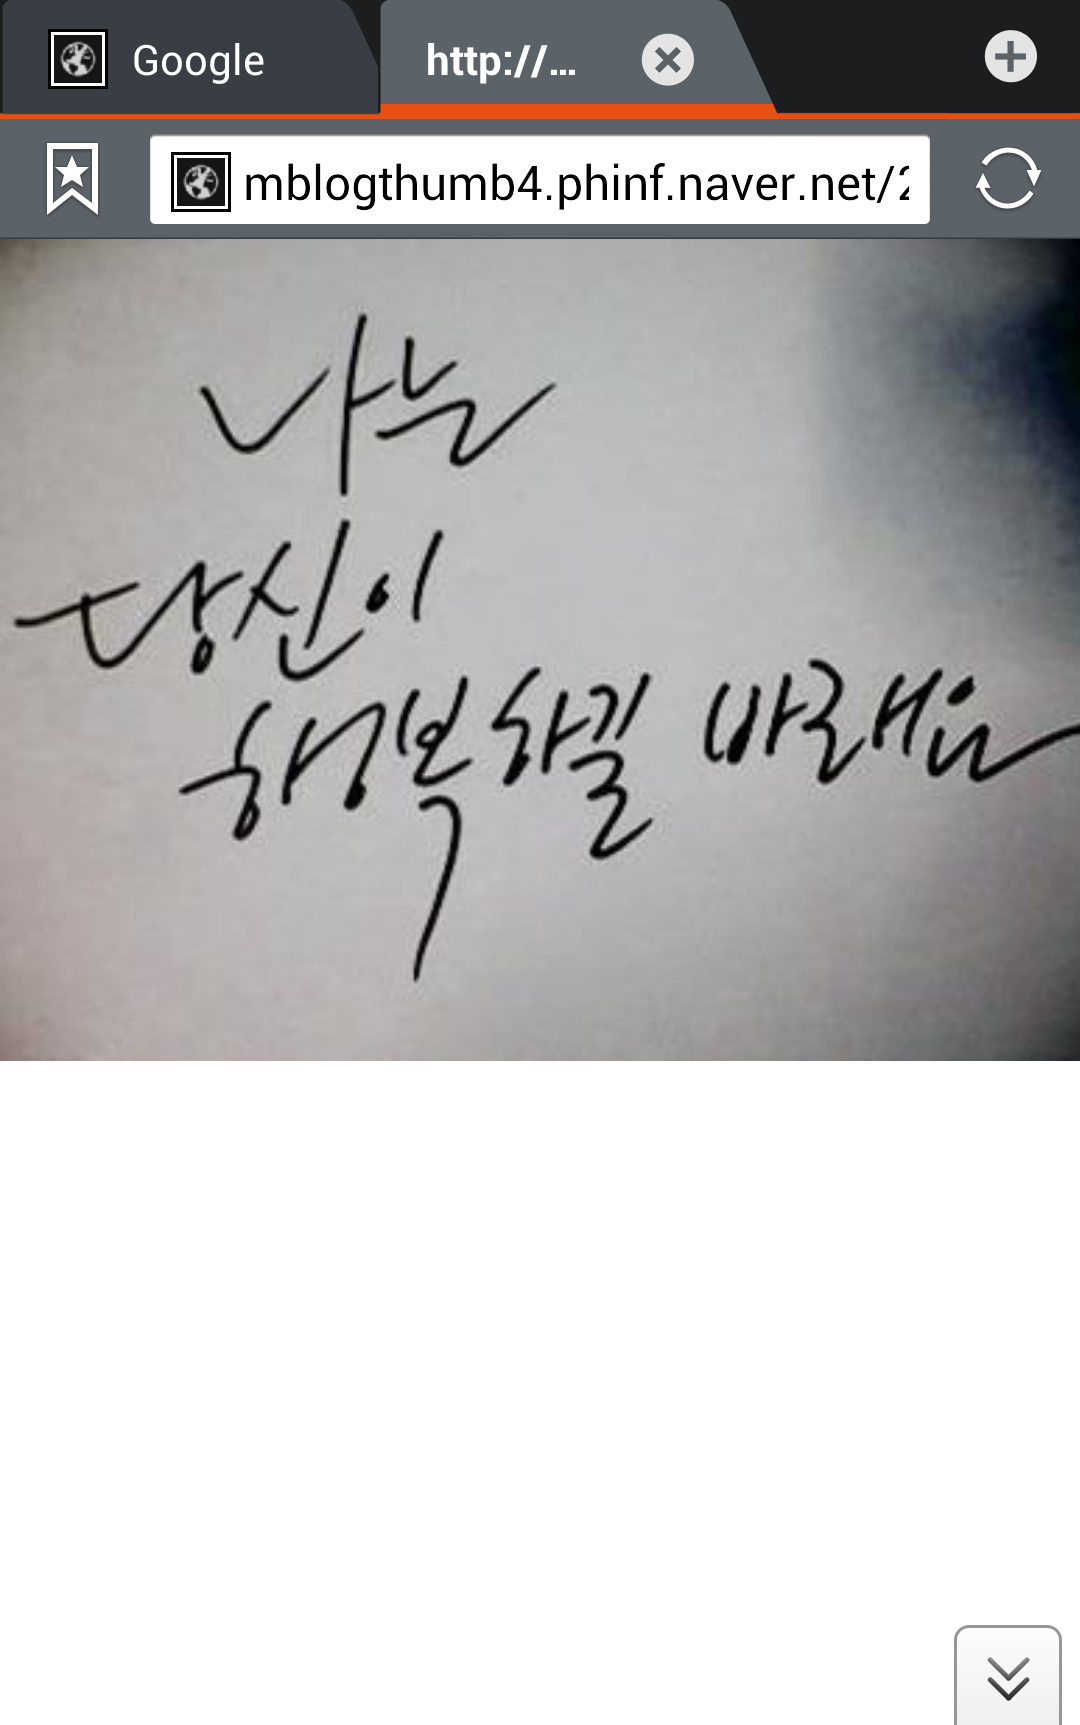 Google
http://...
mblogthumb4.phinf.naver.net/2
나는
당신이
행복하길 바래요